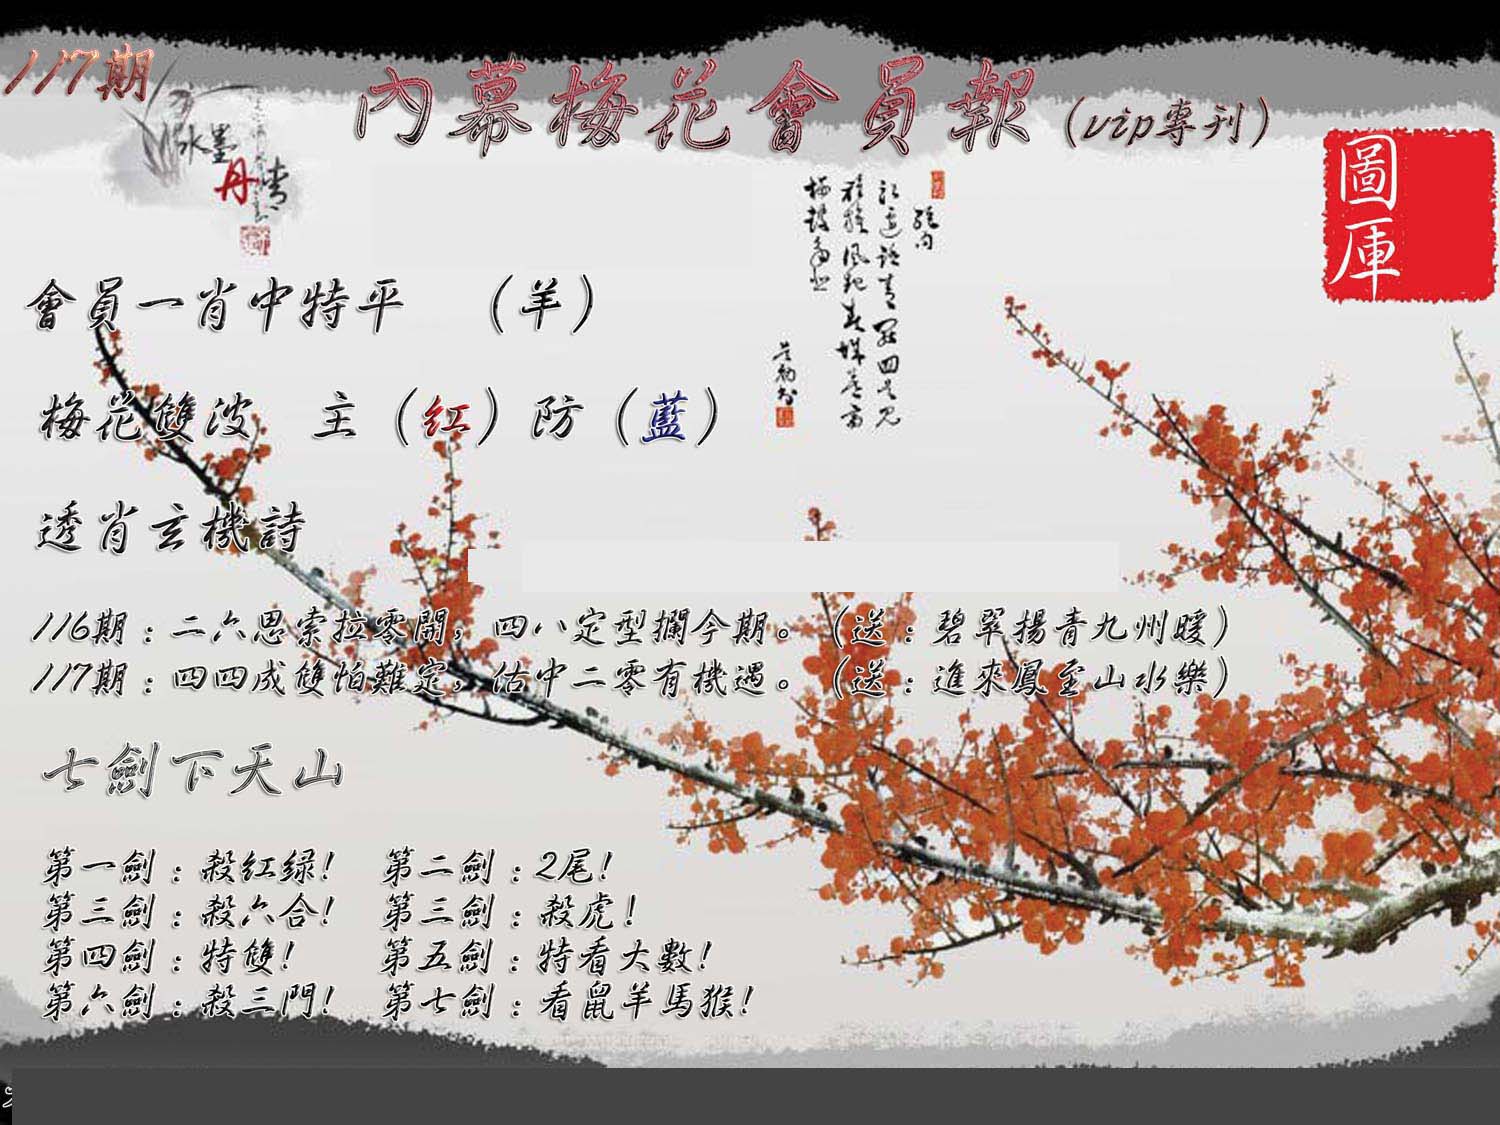 117期
內幕梅花會員報(vip專刊)
水墨
丹青
圖庫
會員一肖中特平 (羊)
梅花雙波 主(红)防(藍)
透肖玄機詩
116期:二六思索拉零開,四八定型攔今期。(送:碧翠揚青九州暖)
117期:四四成雙怕難定,估中二零有機遇。(送:進來鳳至山水樂)
七劍下天山
第一劍:殺紅绿! 第二劍:2尾!
第三劍:殺六合! 第三劍:殺虎!
第四劍:特雙! 第五劍:特看大數!
第六劍:殺三門! 第七劍:看鼠羊馬猴!